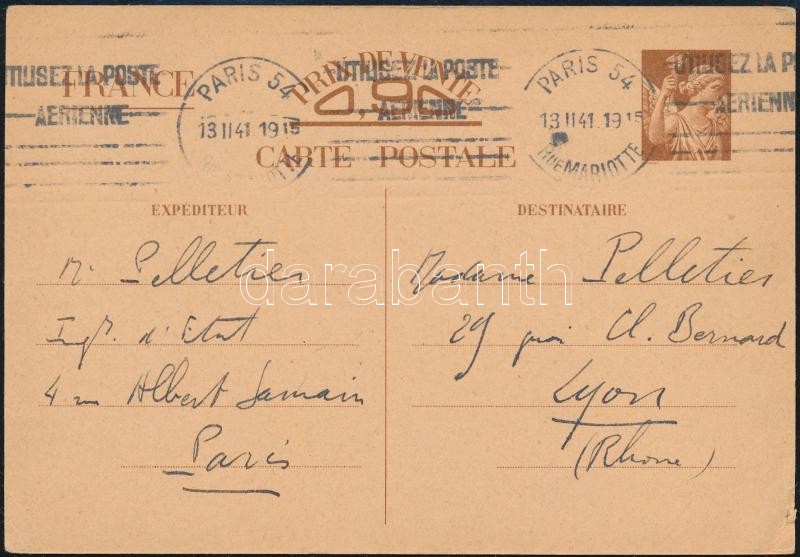 FRANCE
PRIX DE VENTE
0,90
CARTE POSTALE
UTILISEZ LA POSTE
AERIENNE
PARIS 54
13 II 41 19 15
UTILISEZ LA POSTE
AERIENNE
PARIS 54
13 II 41 19 15
RUE MARIOTTE
UTILISEZ LA P
AERIENN
EXPÉDITEUR
Mr Pelletier
Ingr. d'Etat
4 rue Albert Samain
Paris
DESTINATAIRE
Madame Pelletier
29 quai Cl. Bernard
Lyon
(Rhone)
darabanth